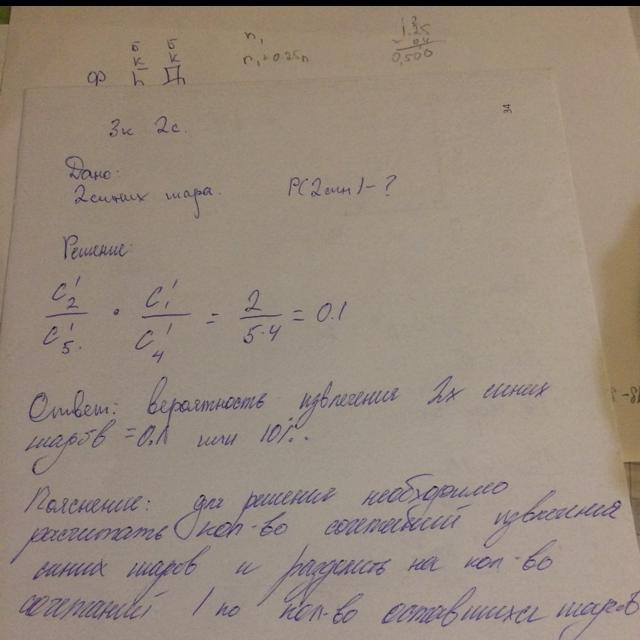 n₁
n₁ + 0.25n
1.25
0.4
0,500
Б Б
К К
Ф П Д
34
3к 2с.
Дано:
2 синих шара. P(2син) - ?
Решение:
C₂¹/C₅¹ · C₁¹/C₄¹ = 2/5·4 = 0.1
Ответ: вероятность извлечения 2х синих
шаров = 0.1 или 10%.
Пояснение: для решения необходимо
расчитать кол-во сочетаний извлечения
синих шаров и разделить на кол-во
сочетаний 1 по кол-во оставшихся шаров